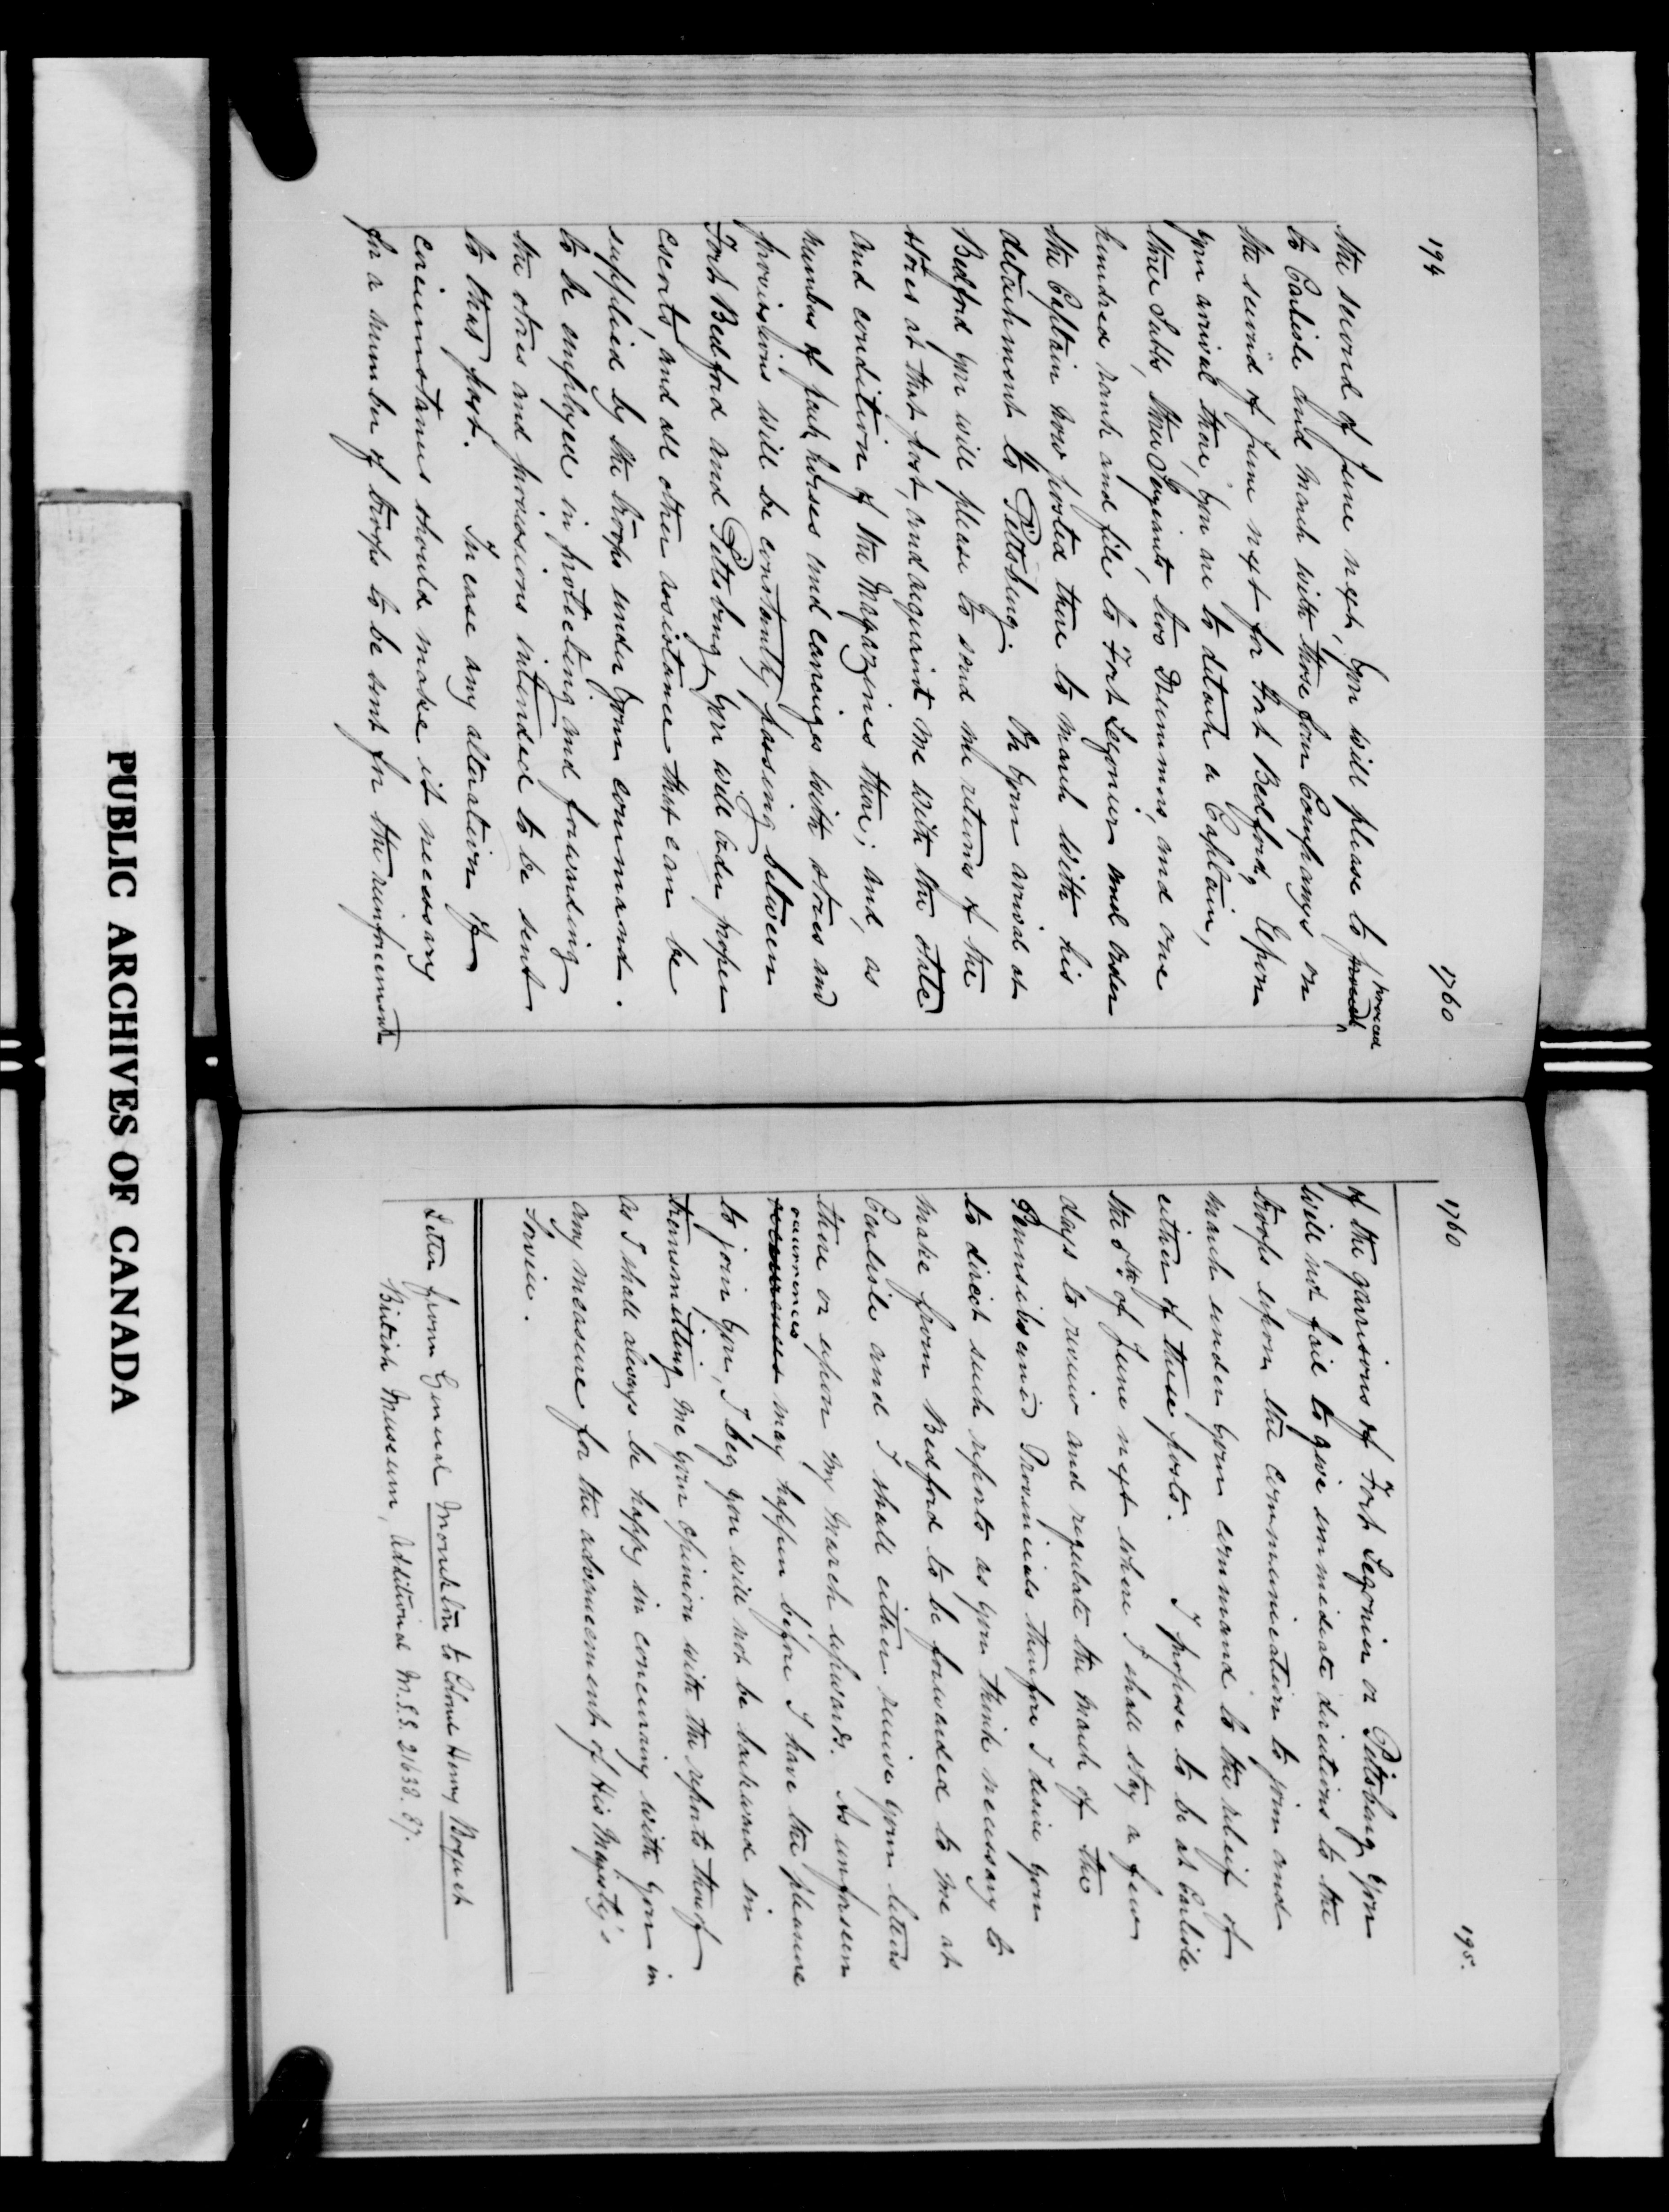 194
1760
the second of June next, you will please to proceed
proceed
to Carlisle and march with those four Companys on
the second of June next for Fort Bedford, Upon
your arrival there, you are to detach a Captain,
three Subbs, three Serjeants, two Drummers, and one
hundred rank and file to Fort Legonier and order
the Captain now posted there to march with his
detachment to Pittsburg. On your arrival at
Bedford you will please to send me returns of the
stores at that post, and acquaint me with the state
and condition of the Magazines there; and, as
numbers of pack horses and carriages with stores and
provisions will be constantly passing between
Fort Bedford and Pittsburg, you will order proper
escorts, and all other assistance that can be
supplied by the troops under your command.
to be employed in protecting and forwarding
the stores and provisions intended to be sent
to that post. In case any alteration of
circumstances should make it necessary
for a number of troops to be sent for the reinforcement
1760
195.
of the garrisons of Fort Legonier or Pittsburg you
will not fail to give immediate directions to the
troops upon the communication to join and
march under your command to the relief of
either of these posts. I propose to be at Carlisle
the 6th of June next where I shall stay a few
days to review and regulate the march of the
Pennsilvania Provincials therefore I desire you
to direct such reports as you think necessary to
make from Bedford to be forwarded to me at
Carlisle and I shall either receive your letters
there or upon my march upwards. As unforseen
occurrences
may happen before I have the pleasure
to join you, I beg you will not be backward in
transmitting me your opinion with the reports thereof
as I shall always be happy in concurring with you in
any measure for the advancement of His Majesty's
Service.
Letter from General Monckton to Colonel Henry Boquet
British Museum, Additional M.S.S. 21638. 87.
PUBLIC ARCHIVES OF CANADA